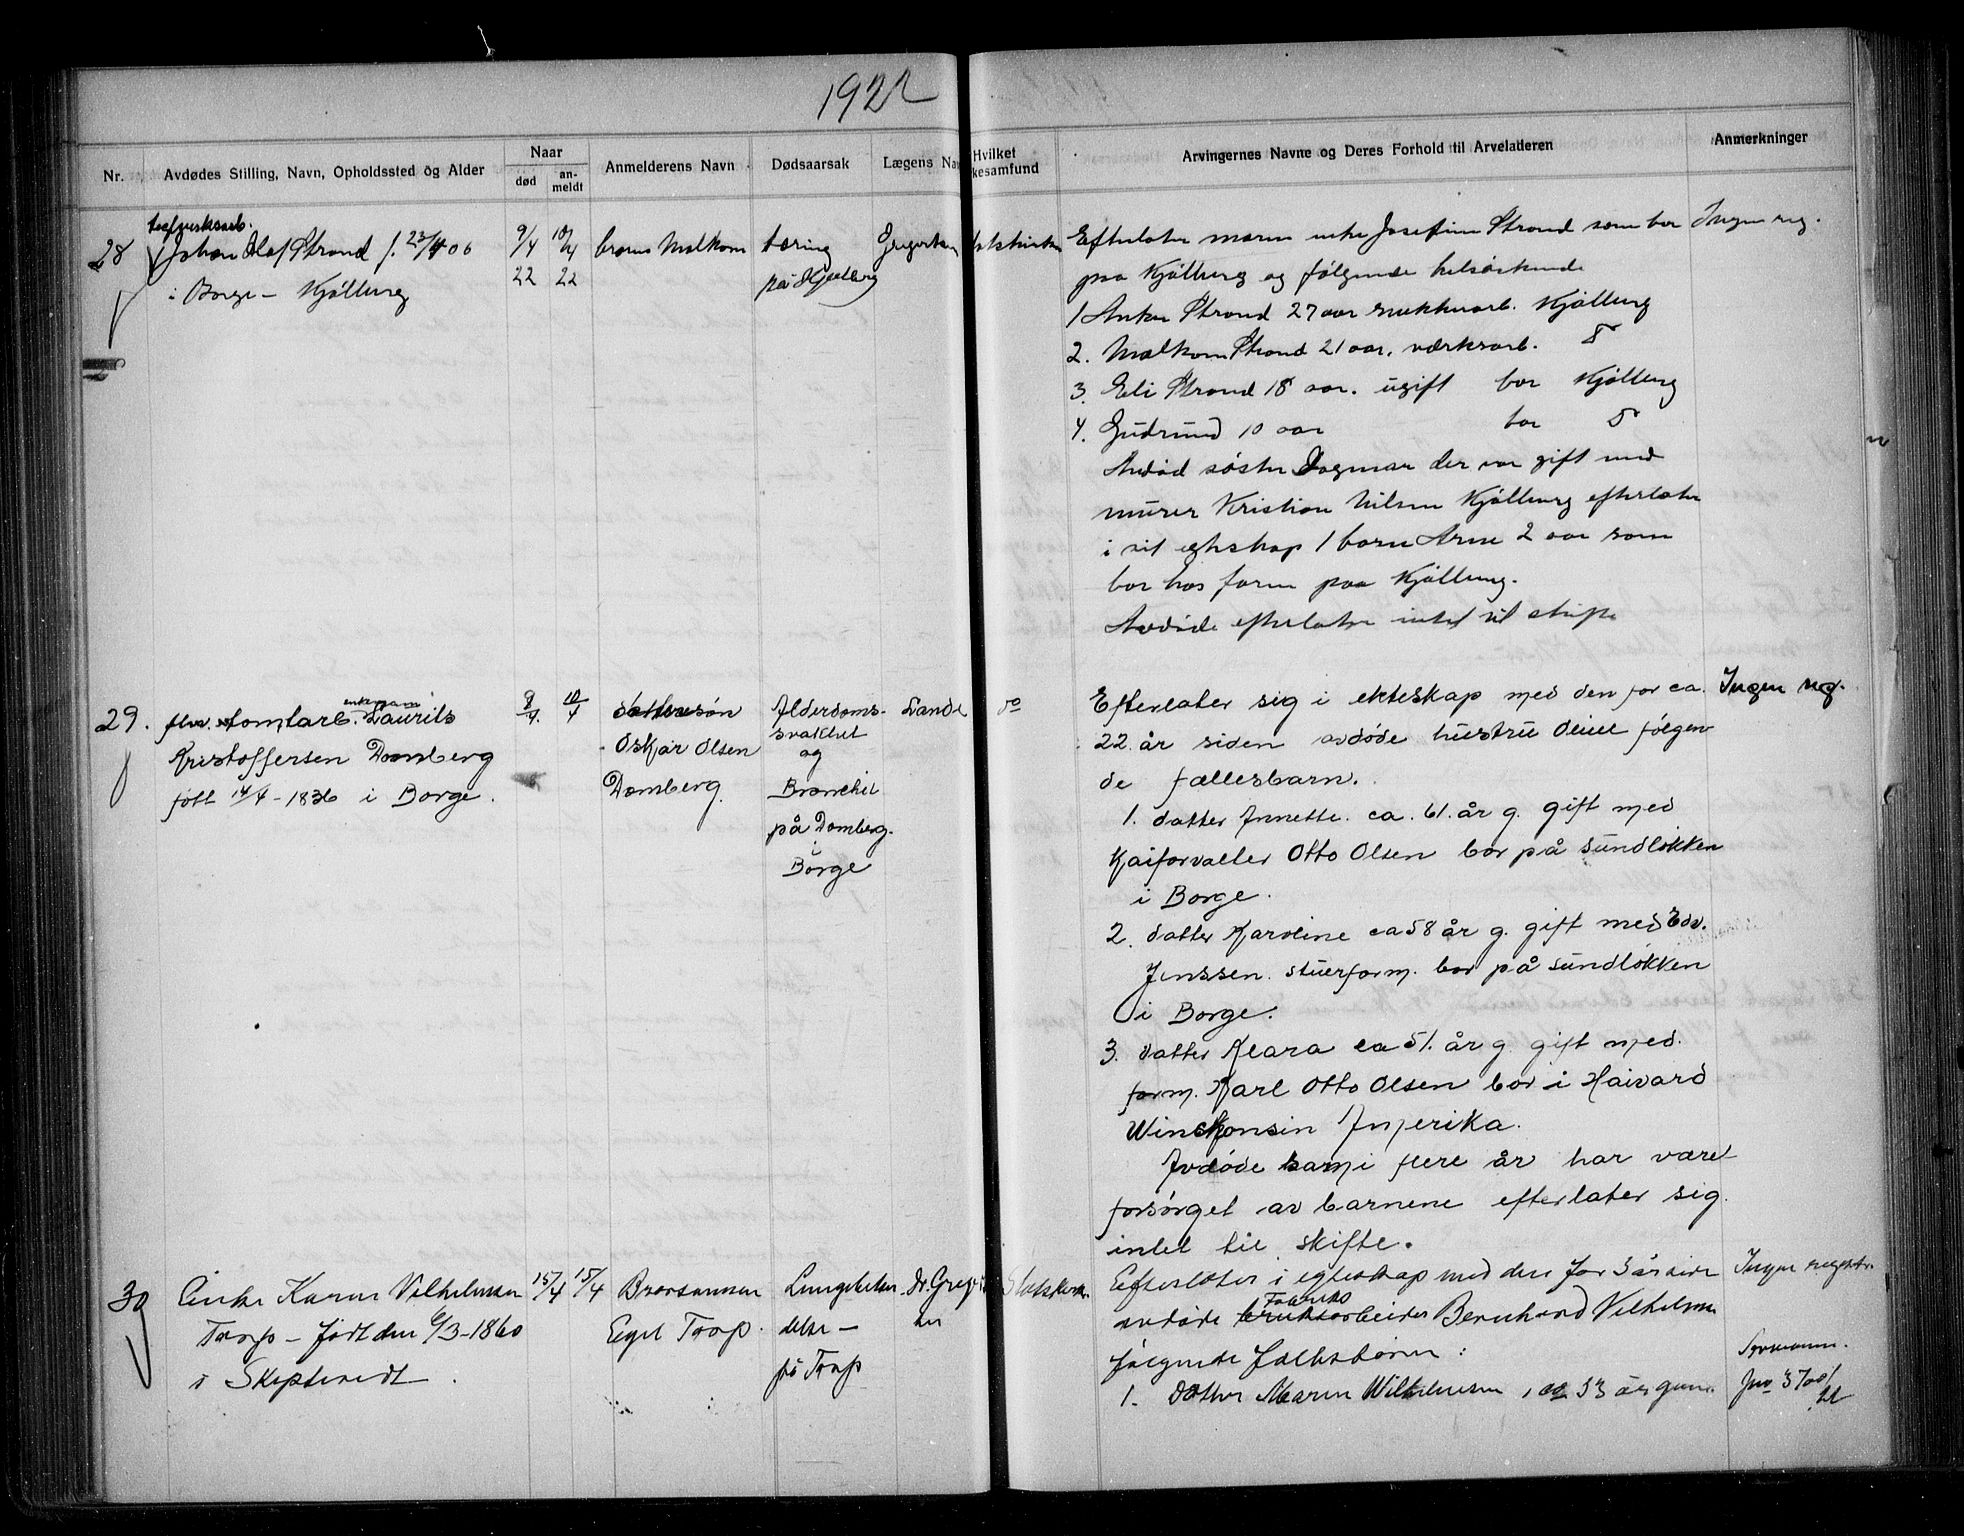 1922
Nr.
Avdødes Stilling, Navn, Opholdssted og Alder
Naar
død
an-
meldt
Anmelderens Navn
Dødsaarsak
Lægens Nav
Hvilket
kesamfund
Arvingernes Navne og Deres Forhold til Arveladeren
Anmerkninger
28
Johan Olaf Strand f. 23/4 06
i Borge – Kjølberg
9/4
22
10/4
22
broren Malkom
tæring
på Kjølberg
Gregersen
Statskirken
Efterlater moren enke Josefine Strand som bor
paa Kjølberg og følgende helsøskende
1 Anker Strand 27 aar snekkerarb. Kjølberg
2. Malkom Strand 21 aar, værksarb. do
3. Eli Strand 18 aar. ugift bor Kjølberg
4. Gudrund 10 aar bor do
Avdød søster Dagmar der var gift med
murer Kristian Nilsen Kjølberg efterlater
i sit egteskap 1 barn Arne 2 aar som
bor hos faren paa Kjølberg.
Avdøde efterlater intet til skifte
Ingen reg.
29.
fhv. tomtarb. enkemann Laurits
Kristoffersen Domberg
født 14/4 - 1836 i Borge.
8/4.
10/4
dattersøn
Oskjar Olsen
Domberg.
Alderdoms-
svakhet
og
Bronchit
på Domberg.
i
Borge
Lande
do
Efterlater sig i ekteskap med den for ca.
22. år siden avdøde hustru Oliue følgen
de fællesbarn.
1. datter Annette. ca. 61. år g. gift med
Kaiforvalter Otto Olsen bor på Sundløkken
i Borge.
2. datter Karoline ca 58 år g. gift med Edv.
Jenssen. stuerform. bor på Sundløkken
i Borge.
3. datter Klara ca 51. år g gift med.
form. Karl Otto Olsen bor i Haivard
Winskonsin Amerika.
Avdøde som i flere år har været
forsørget av barnene efterlater sig
intet til skifte.
Ingen reg.
30
Enke Karen Vilhelmsen
Torp – født den 6/3 - 1860
i Skiptvedt.
15/4
15/4
Brorsønnen
Egil Torp.
Lungebeten
delse –
på Torp
Dr. Greger
sen
Statskirken
Efterlater i egteskap med den for 3 år siden
avdøde Fabriks bruksarbeider Bernhard Vilhelmsen
følgende fællesbørn:
1. Datter Maren Wilhelmsen, ca 33 år gam.
Ingen registr.
Jnr 3700/
22